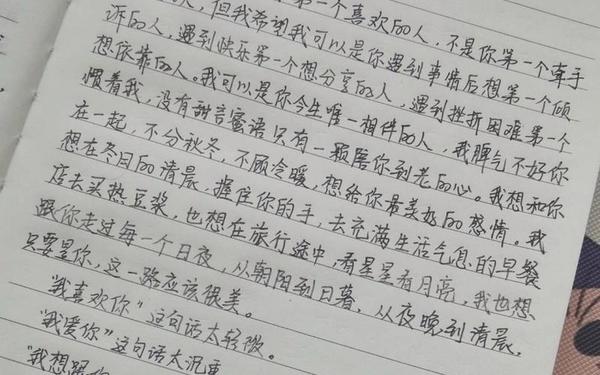 人,但我希望我可以是你第一个喜欢的人,不是你第一个牵手
诉的人,遇到快乐第一个想分享的人,遇到事情后想第一个倾
想依靠的人。我可以是你今生唯一相伴的人,遇到挫折困难第一个
惯着我,没有甜言蜜语只有一颗陪你到老的心。我脾气不好你
在一起,不分秋冬,不顾冷暖,想给你最美好的感情。我想和你
想在冬日的清晨,握住你的手,去充满生活气息的早餐
店去买热豆浆,也想在旅行途中,看星星看月亮,我也想
跟你走过每一个日夜,从朝阳到日暮,从夜晚到清晨,
只要是你,这一路应该很美。
"我喜欢你"这句话太轻微。
"我爱你"这句话太沉重
"我想跟你